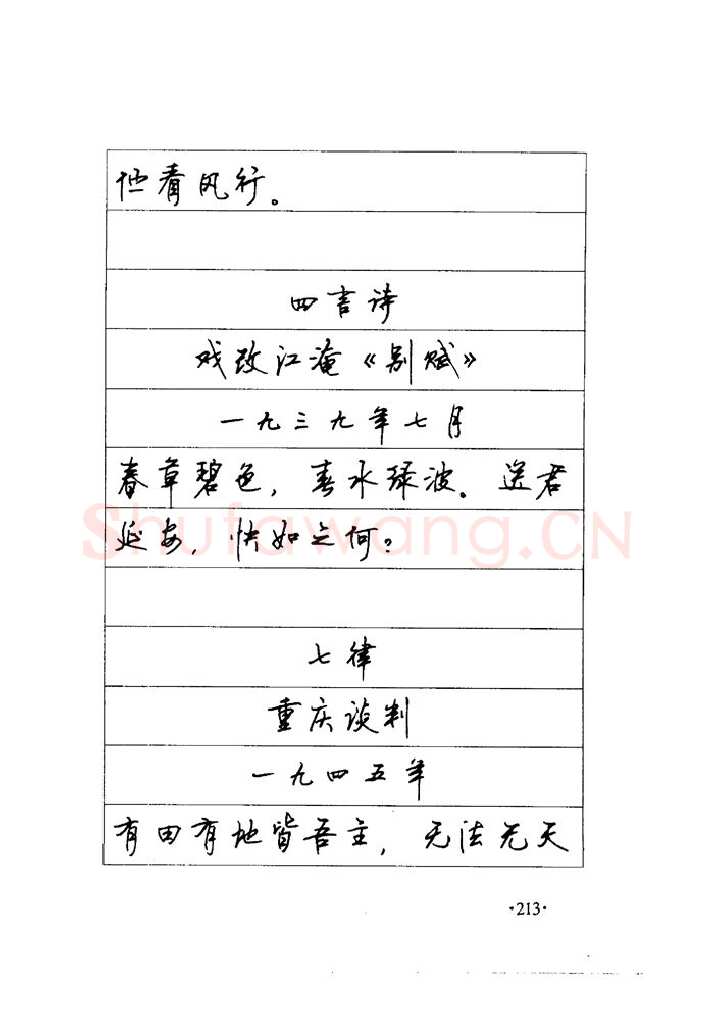 他看风行。
四言诗
戏改江淹《别赋》
一九三九年七月
春草碧色，春水绿波。送君
延安，快如之何？
七律
重庆谈判
一九四五年
有田有地皆吾主，无法无天
·213·
Shufawang.CN